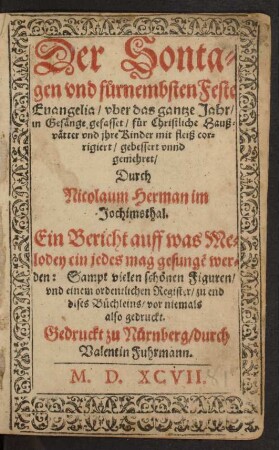 Der Sonta-
gen vnd fürnembsten Feste
Euangelia / vber das gantze Jahr /
in Gesänge gefasset / für Christliche Hauß-
vätter vnd jhre Kinder mit fleiß cor-
rigiert / gebessert vnnd
gemehret /
Durch
Nicolaum Herman im
Jochimsthal.
Ein Bericht auff was Me-
lodey ein jedes mag gesungē wer-
den: Sampt vielen schönen Figuren /
vnd einem ordentlichen Register / zu end
dises Büchleins / vor niemals
also gedruckt.
Gedruckt zu Nürnberg / durch
Valentin Fuhrmann.
M. D. XCVII.